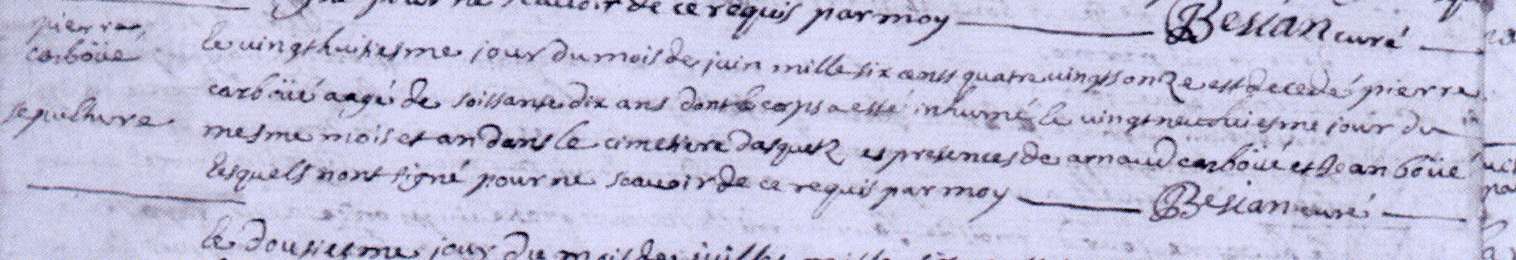 pour ne scauoir de ce requis par moy Besian curé
pierre
carboüe
sepulture
le uingthuitiesme jour du mois de juin mille six cents quatre uingts onze est decedé pierre
carboüé aagé de soissante dix ans dont le corps a esté inhumé le uingtneuuiesme jour du
mesme mois et an dans le cimetiere dasquetz es presences de arnaud carboüé et Jean boüé
lesquels nont signé pour ne scauoir de ce requis par moy Besian curé
le dousiesme jour du mois de juillet mille six